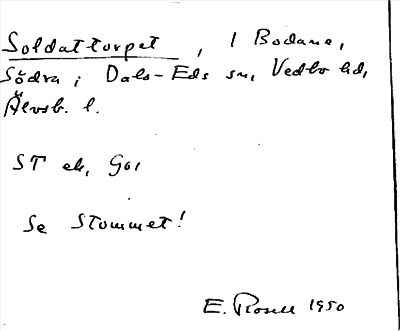 Soldattorpet, 1 Bodane,
Södra i Dals-Eds sn, Vedbo hd,
Älvsb. l.
ST ek, G01
Se Stommet!
E. Rosell 1950